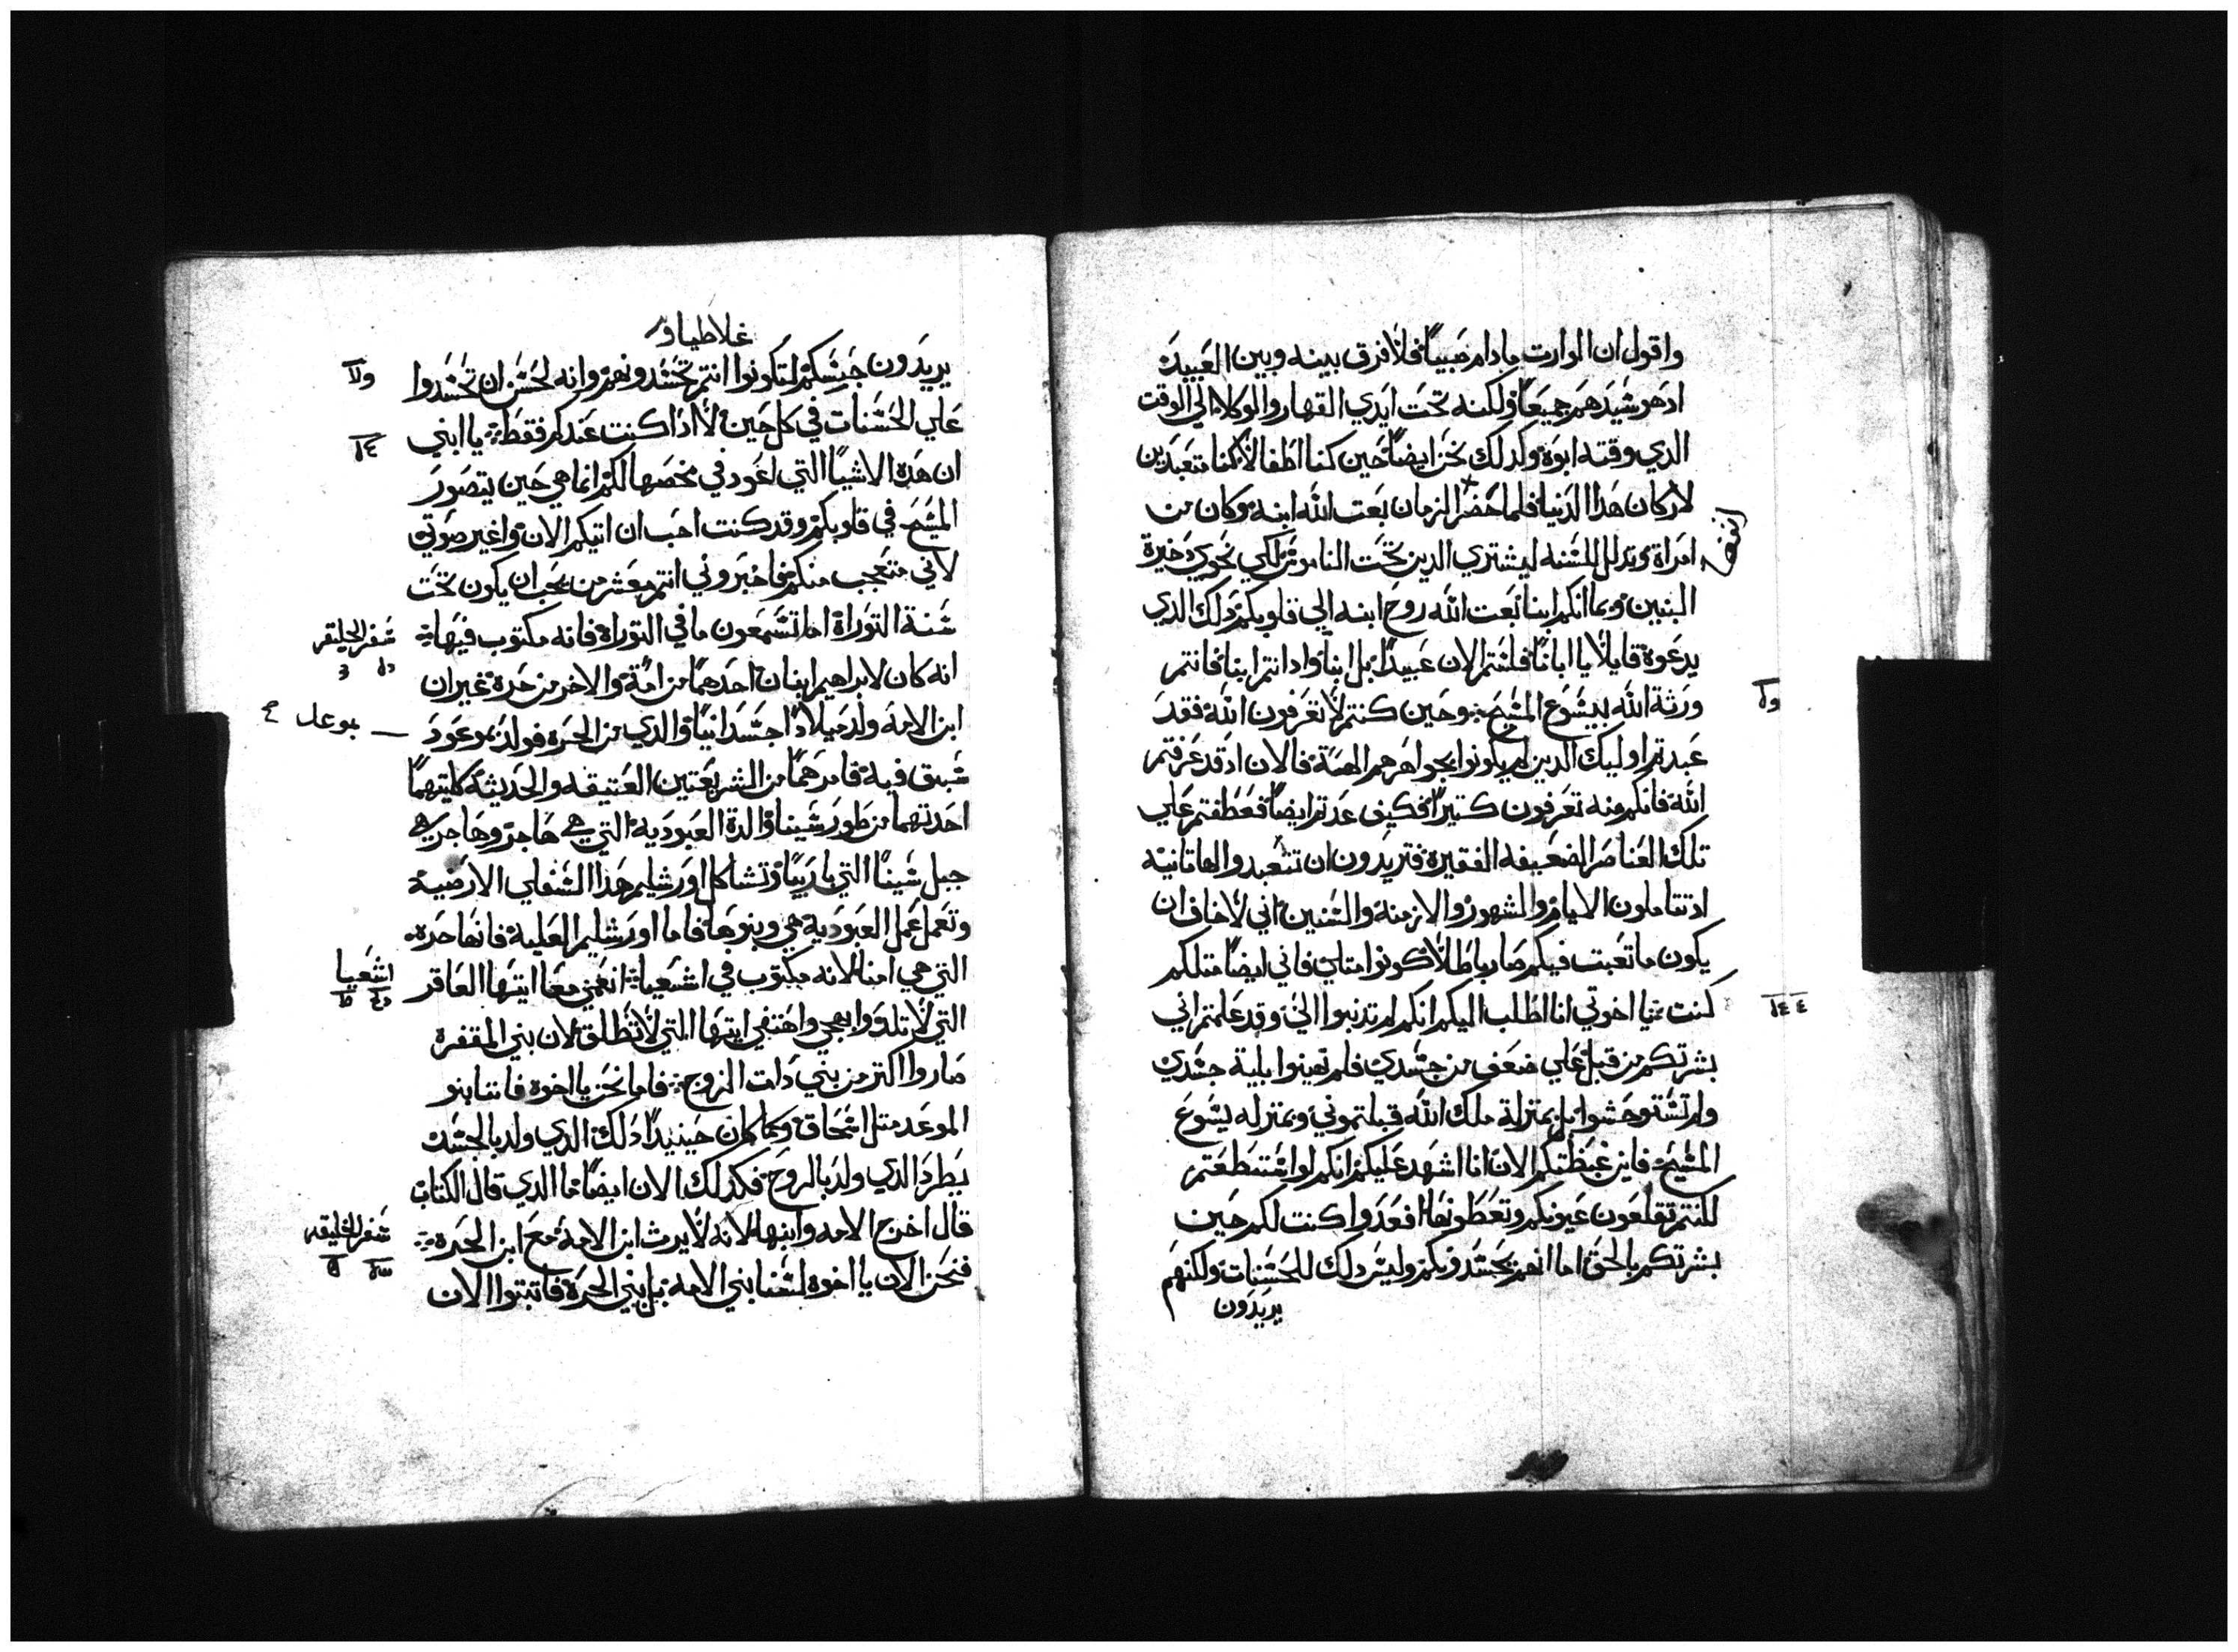 واقول ان الوارت مادام صبياً فلا فرق بينه وبين العبيد
اد هو سيدهم جميعاً ولكنه تحت ايدي القهارو والوكلاء الي الوقت
الدي وقته ابوه وكدلك نحن ايضاً حين كنا اطفالاً كنا متعبدين
لاركان هدا الدنيا فلما حضر الزمان بعت الله ابنه وكان من
امراة وتدلل للسنه ليشتري الدين تحت الناموس لكي نحوي دخيرة
البنين وبما انكم ابنا بعت الله روح ابنه الي قلوبكم دلك الدي
يدعوه قايلاً يا ابانا فلستم الان عبيداً بل ابنا وادا انتم ابنا فانتم
ورثة الله بيسوع المسيح وحين كنتم لا تعرفون الله فقد
عبدتم اوليك الدين لم يكونوا بجواهرهم الهة فالان اد قد عرفتم
الله فانكم منه تعرفون كتيراً فكيف عدتم ايضاً فعطفتم علي
تلك العناصر الضعيفه الفقيره فتريدون ان تتعبدوا لها تانية
اد تتاملون الايام والشهور والازمنة والسنين اني لاخاف ان
يكون ما تعبت فيكم صار باطلاً كونوا متلي فاني ايضاً متلكم
كنت يا اخوتي انا اطلب اليكم انكم لم تدنبوا الي وقد علمتم اني
بشرتكم من قبل علي ضعف من جسدي فلم تهينوا بلية جسدي
ولم تستوحشوا بل بمنزلة ملك الله قبلتموني وبمنزله يسوع
المسيح فاين غبطتكم الان انا اشهد عليكم انكم لو استطعتم
لكنتم تقلعون عيونكم وتعطونها افعدوا كنت لكم حين
بشرتكم بالحق اما انهم يحسدونكم وليس دلك للحسنات ولكنهم
يريدون
غلاطياو
يريدون حبسكم لتكونوا انتم تحسدونهم وانه لحسن ان تحسدوا
علي الحسنات في كل حين لا ادا كنت عندكم فقط يا ابني
ان هده الاشيا التي اعود في مخضها لكم انما هي حين يتصور
المسيح في قلوبكم وقد كنت احب ان اتيكم الان واغير صوتي
لاني متعجب منكم فاخبروني انتم معشر من يحب ان يكون تحت
سنة التوراة اما تسمعون ما في التوراة فانه مكتوب فيها
انه كان لابراهيم ابنان احدهما من امة والاخر من حرة غير ان
ابن الامه ولد ميلاداً جسدانياً والدي من الحره فولد بموعود
سبق فيه فامرهما من الشريعتين العتيقه والحديثة كلتيهما
احدتهما من طور سينا والدة العبودية التي هي هاجر وهاجر هي
جبل سينا التي باربيا وتشاكل اورشليم هدا السفلي الارضية
وتعمل عمل العبودية هي وبنوها فاما اورشليم العلية فانها حره
التي هي امنا لانه مكتوب في اشعيا انعمي معا ايتها العاقر
التي لا تلد وابهجي واهتفي ايتها التي لا تطلق لان بني المقفرة
صاروا اكتر من بني دات الزوج فاما نحن يا اخوه فاننا بنو
الموعد متل اسحاق وكما كان حينيداً دلك الدي ولد بالجسد
يطرد الدي ولد بالروح فكدلك الان ايضاً ما الدي قال الكتاب
قال اخرج الامه وابنها لانه لا يرث ابن الامة مع ابن الحرة
فنحن الان يا اخوه لسنا بني الامه بل بني الحرة فاتبتوا الان
سفر الخليقه
اشعيا
سفر الخليقه